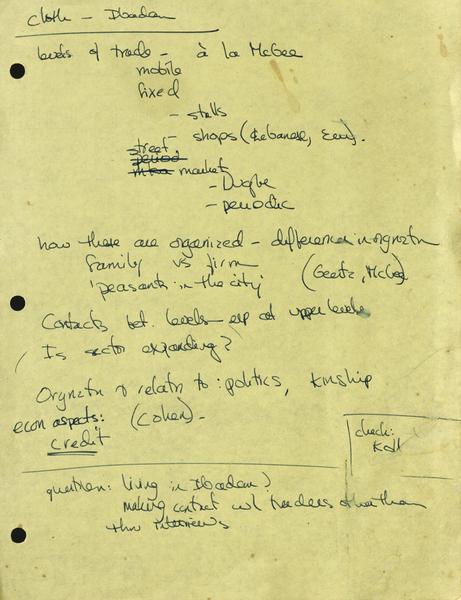 cloth - Ibadan
levels of trade - à la McGee
mobile
fixed
- stalls
- shops (Lebanese, Eur).
street
period
market
- Dugbe
- periodic
how these are organized - differences in orgnztn
family vs firm (Geertz, McGee)
'peasants in the city'
Contacts bet. levels esp at upper levels
Is sector expanding?
Orgnztn & relatn to: politics, kinship
econ aspects: (Cohen) -
credit
check:
question: living in Ibadan?
making contact w/ traders other than
thru interviews